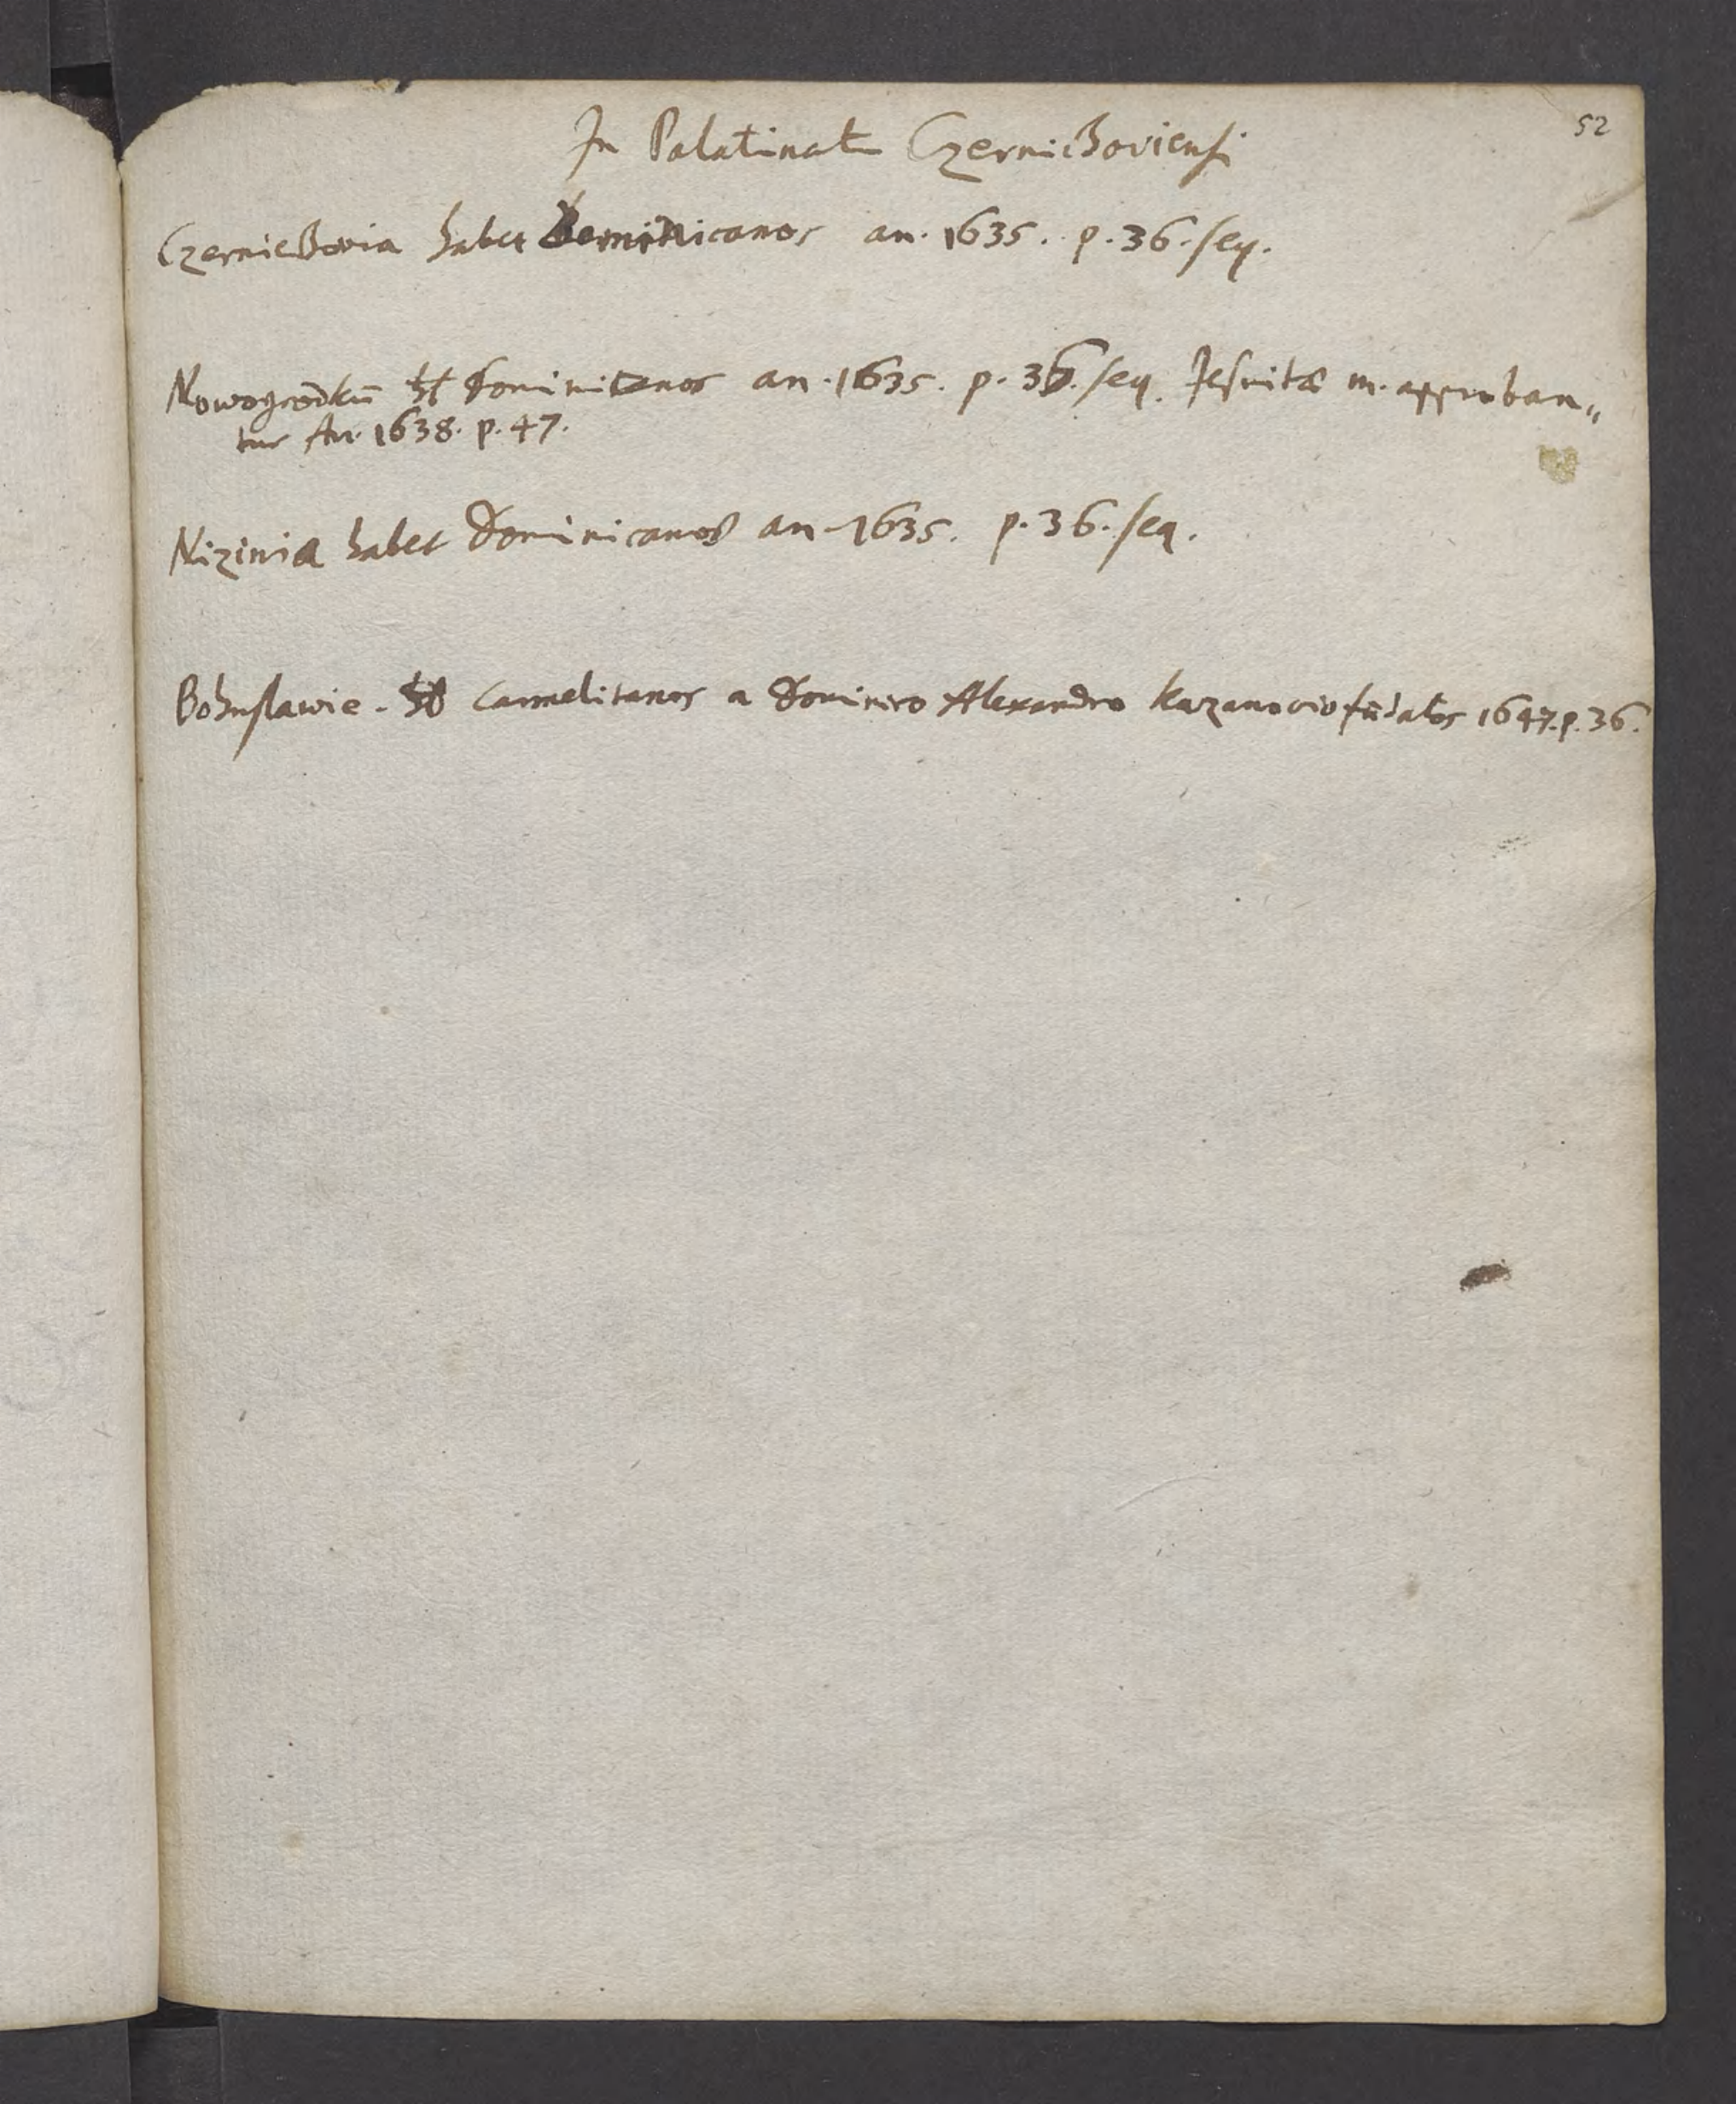 52
In Palatinatu Czernichoviensi
Czernichovia habet Dominicanos an. 1635. p. 36. seq.
Nowogrodkū ht Dominicanos an. 1635. p. 36. seq. Jesuitæ m. approban„
tur An. 1638. p. 47.
Nizinia habet Dominicanos an. 1635. p. 36. seq.
Bohuslawie. Carmelitanos a Dominico Alexandro Kazanovio fūdatos 1647. p. 36.